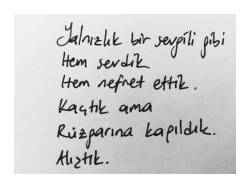 Yalnızlık bir sevgili gibi
Hem sevdik
Hem nefret ettik.
Kaçtık ama
Rüzgarına kapıldık.
Alıştık.